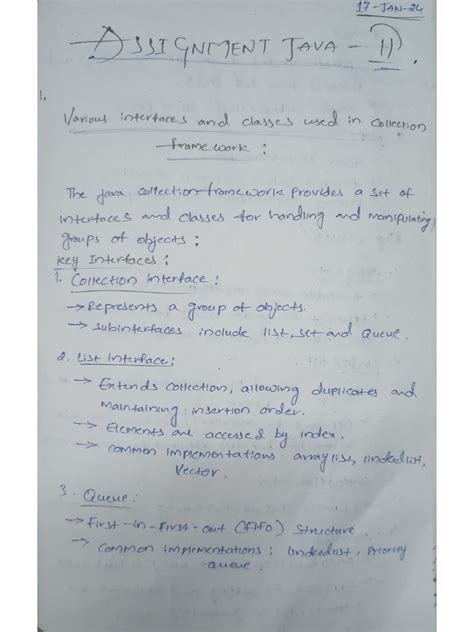 17-JAN-24
ASSIGNMENT JAVA - II.
1.
Various interfaces and classes used in Collection
framework :
The Java collection framework provides a set of
interfaces and classes for handling and manipulating
groups of objects :
Key Interfaces :
1. Collection interface :
→ Represents a group of objects.
→ Subinterfaces include list, set and Queue.
2. List interface :
→ Extends collection, allowing duplicates and
maintaining insertion order.
→ Elements are accessed by index.
→ Common implementations arraylist, linkedlist,
Vector.
3. Queue :
→ First-in-first-out (fifo) structure.
→ Common implementations ; linkedlist, Priority
queue.